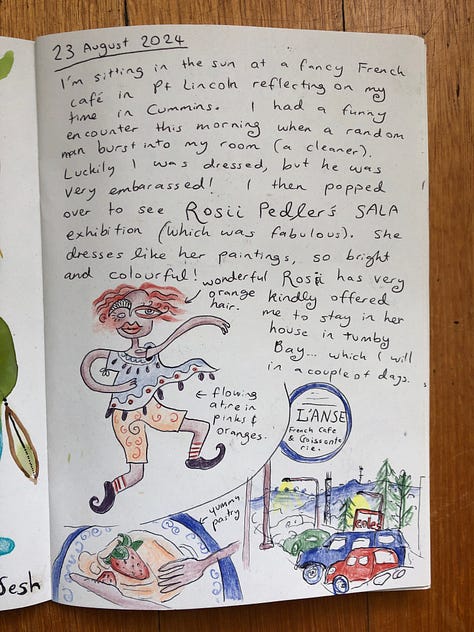 23 August 2024
I'm sitting in the sun at a fancy French
café in Pt Lincoln reflecting on my
time in Cummins. I had a funny
encounter this morning when a random
man burst into my room (a cleaner).
Luckily I was dressed, but he was
very embarassed! I then popped
over to see Rosii Pedler's SALA
exhibition (which was fabulous). She
dresses like her paintings, so bright
and colourful!
wonderful
orange
hair.
Rosii has very
kindly offered
me to stay in her
house in Tumby
Bay... which I will
in a couple of days.
← flowing
attire in
pinks &
oranges.
L'ANSE
French Cafe
& Croissante
rie.
coles
yummy
pastry
Jesh